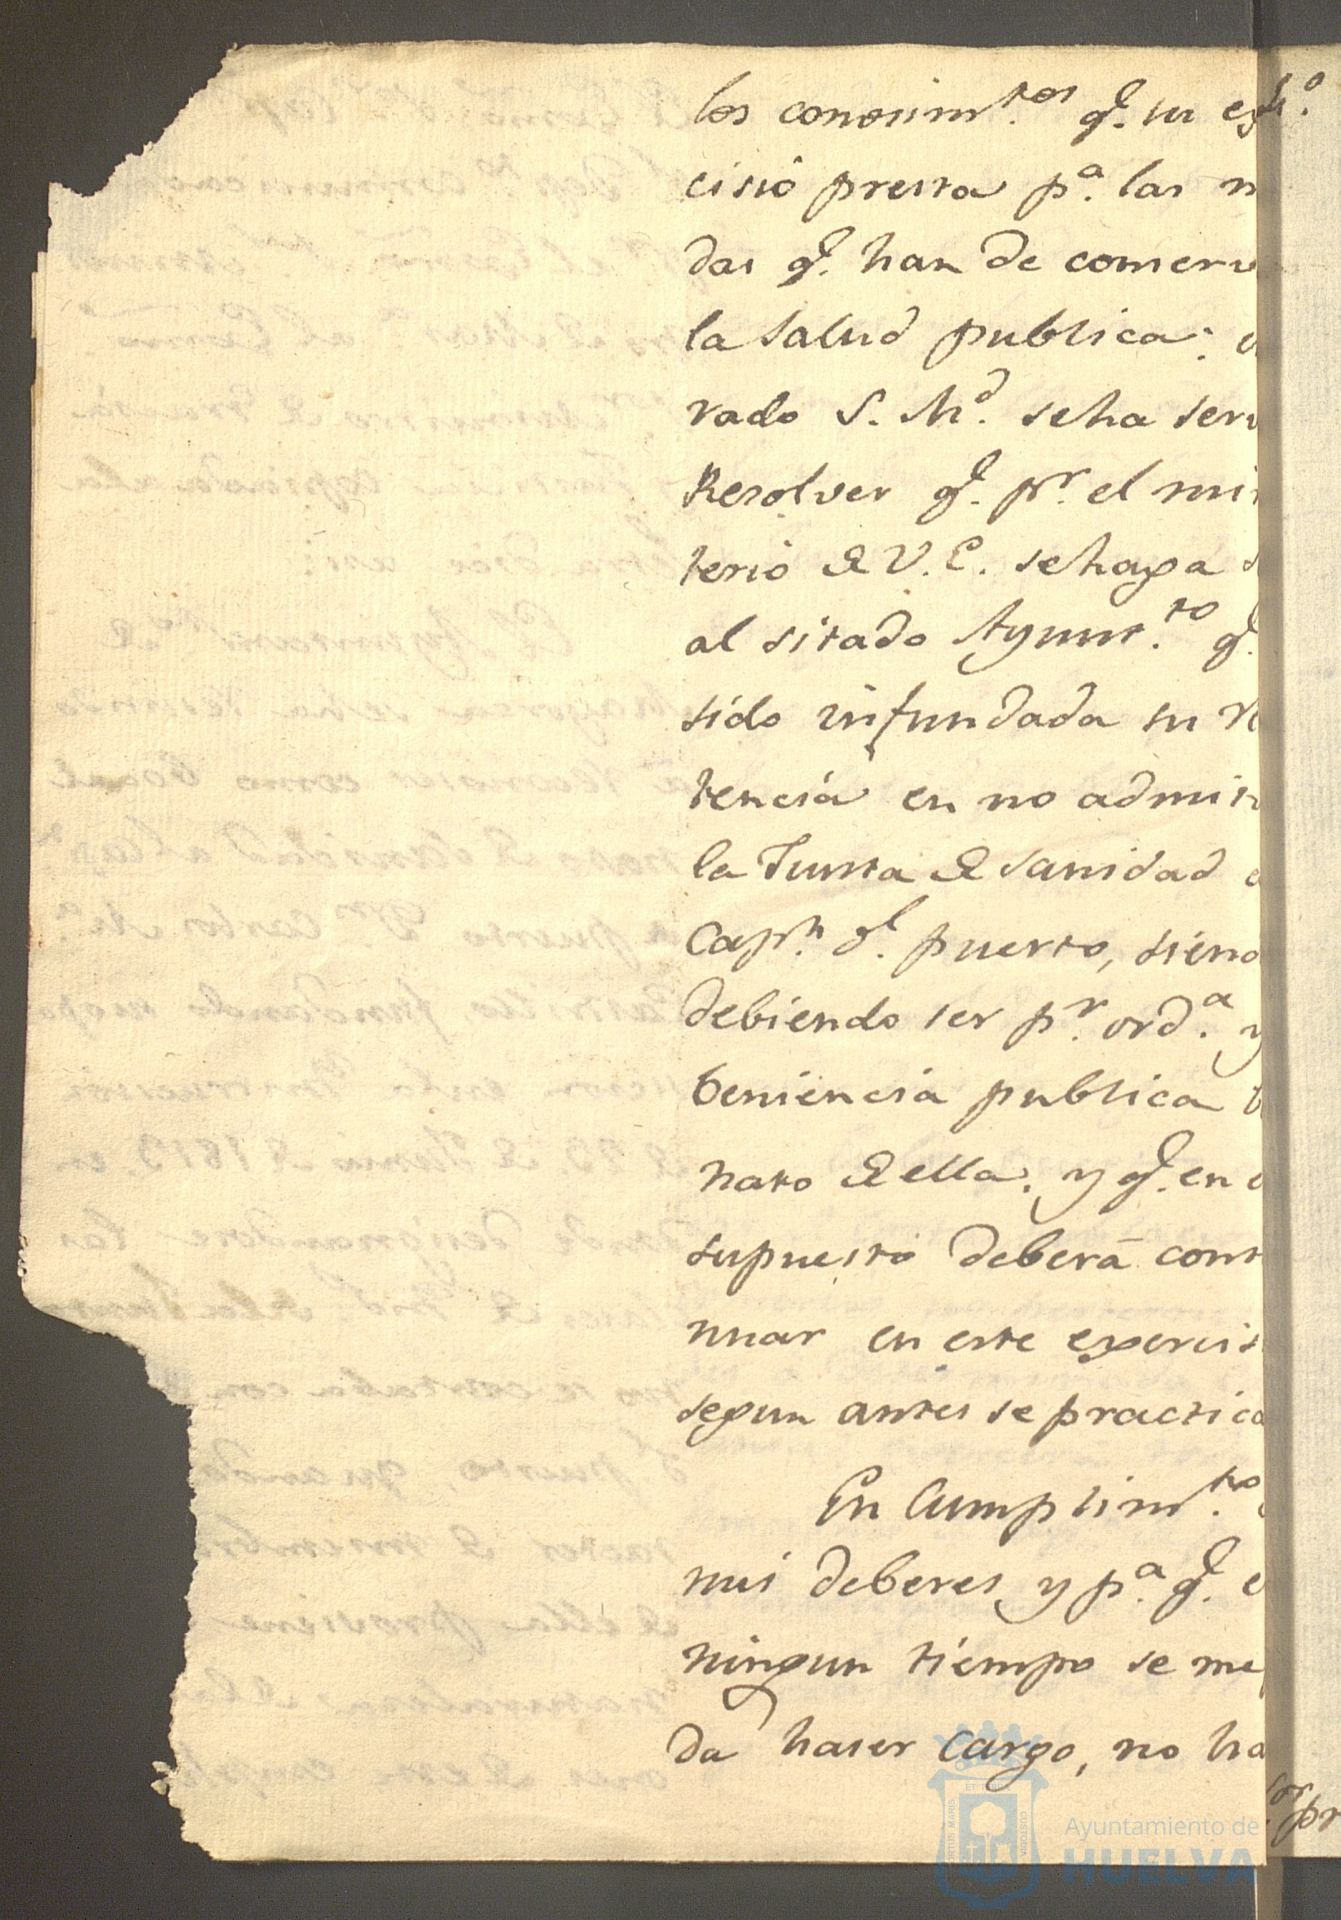 los conosim.tos q.e su ex
cisio presta p.a las m
das q.e han de conserv
la salud publica: e
rado S. M.d seha serv
Resolver q.e p.r el min
terio de V. E. sehaga s
al sitado Ayunt.to q.e
sido infundada su re
tencia en no admit
la Junta de sanidad
Cap.n d.l puerto, siend
debiendo ser p.r ord.a y
beniencia publica
nato de ella. y q.e en
supuesto deberá cont
nuar en este exercis
segun antes se practica
En Cumplim.to
mis deberes y p.a q.e e
ningun tiempo se me
da haser cargo, no ha
Ayuntamiento de
HUELVA